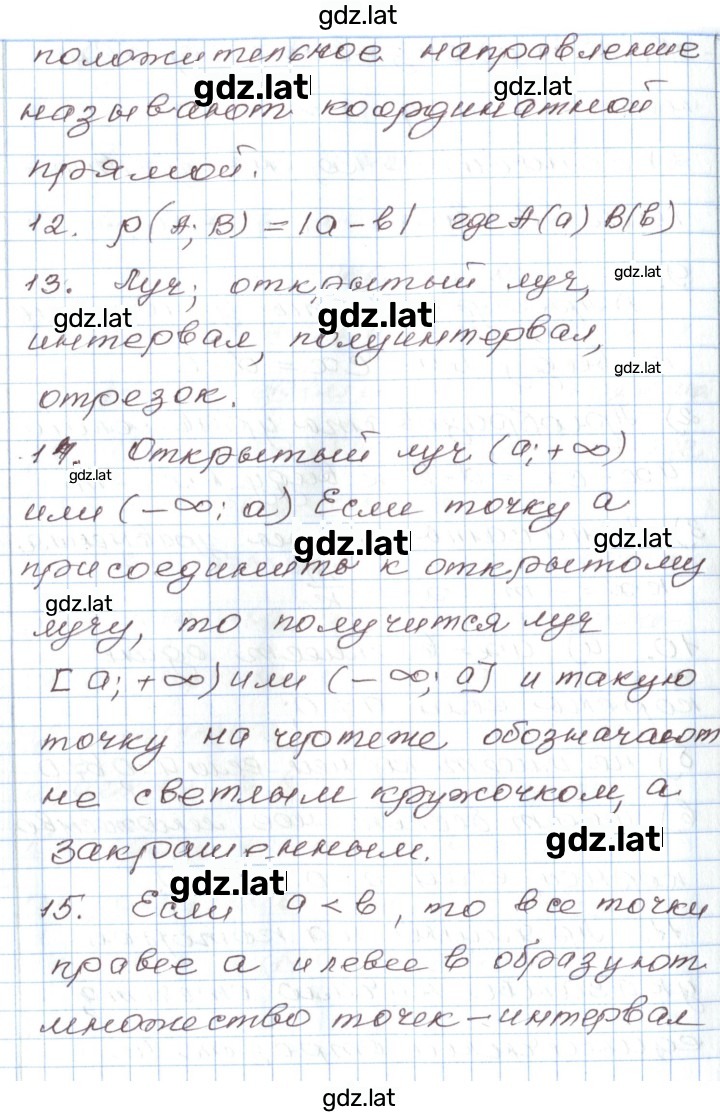 gdz.lat
положительное направление
gdz.lat gdz.lat
называют координатной
прямой.
12. ρ(A; B) = |a - b| где A(a) B(b)
13. Луч; открытый луч, gdz.lat
gdz.lat gdz.lat
интервал, полуинтервал,
gdz.lat
отрезок.
14. Открытый луч (a; +∞)
gdz.lat
или (-∞; a) Если точку a
gdz.lat gdz.lat
присоединить к открытому
gdz.lat
лучу, то получится луч
[a; +∞) или (-∞; a] и такую
точку на чертеже обозначают
не светлым кружочком, а
закрашенным. gdz.lat
gdz.lat
15. Если a < b, то все точки
правее a и левее b образуют
множество точек - интервал
gdz.lat